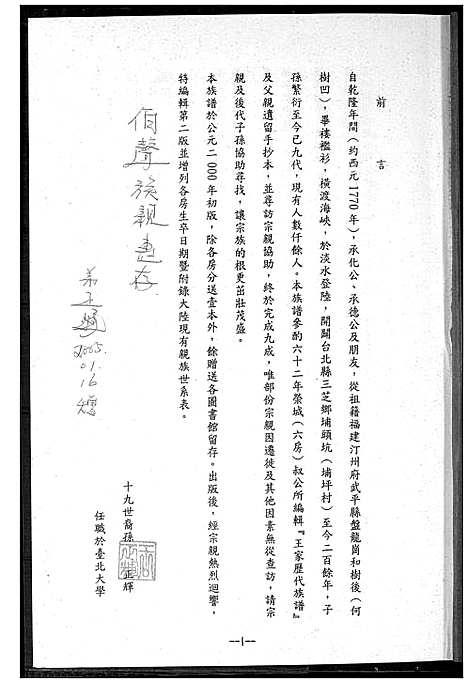 前言
自乾隆年間（約西元1770年），承化公、承德公及朋友，從祖籍福建汀州府武平縣盤龍崗和樹後（何
樹凹），畢褸襤衫，橫渡海峽，於淡水登陸，開闢台北縣三芝鄉埔頭坑（埔坪村）至今二百餘年，子
孫繁衍至今已九代，現有人數仟餘人。本族譜參酌六十二年榮城（六房）叔公所編輯『王家歷代族譜』
及父親遺留手抄本，並尋訪宗親協助，終於完成九成，唯部份宗親因遷徙及其他因素無從查訪，請宗
親及後代子孫協助尋找，讓宗族的根更茁壯茂盛。
本族譜於公元二000年初版，除各房分送壹本外，餘贈送各圖書館留存。出版後，經宗親熱烈迴響，
特編輯第二版並增列各房生卒日期暨附錄大陸現有親族世系表。
十九世裔孫 王 輝
任職於臺北大學
伯聲族親惠存
弟正輝
2005.
01.16
--1--